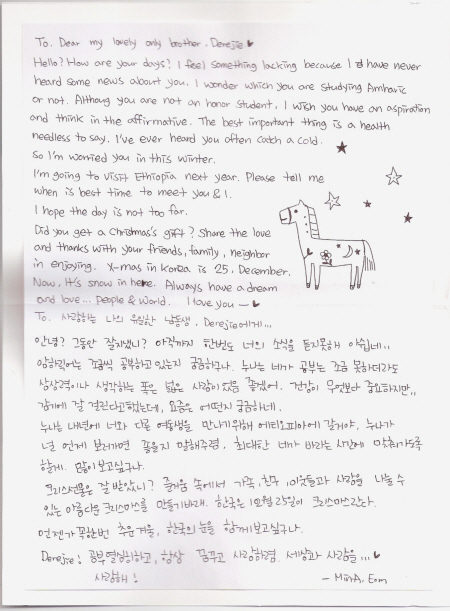 To. Dear my lovely only brother, Derejie ♥
Hello? How are your days? I feel something lacking because I have never
heard some news about you. I wonder which you are studying Amharic
or not. Althoug you are not an honor student, I wish you have an aspiration
and think in the affirmative. The best important thing is a health
needless to say. I've ever heard you often catch a cold.
So I'm worried you in this winter.
I'm going to visit Ethiopia next year. Please tell me
when is best time to meet you & I.
I hope the day is not too far.
Did you get a Christmas's gift? Share the love
and thanks with your friends, family, neighbor
in enjoying. X-mas in Korea is 25, December.
Now, It's snow in here. Always have a dream
and love... People & World. I love you ~ ♥
To. 사랑하는 나의 유일한 남동생, Derejie에게...
안녕? 그동안 잘지냈니? 아직까지 한번도 너의 소식을 듣지못해 아쉽네..
암하릭어는 조금씩 공부하고 있는지 궁금하구나. 누나는 네가 공부는 조금 못하더라도
상상력이나 생각하는 폭은 넓은 사람이 됐음 좋겠어. 건강이 무엇보다 중요하지만,,
감기에 잘 걸린다고했는데, 요즘은 어떤지 궁금하네.
누나는 내년에 너와 다른 여동생을 만나기위해 에티오피아에 갈거야. 누나가
널 언제 보러가면 좋을지 말해주렴. 최대한 너가 바라는 시간에 맞춰가도록
할게. 많이보고싶구나.
크리스선물은 잘 받았니? 즐거움 속에서 가족, 친구, 이웃들과 사랑을 나눌 수
있는 아름다운 크리스마스를 만들기바래. 한국은 12월 25일이 크리스마스란다.
언젠가 꼭한번 추운겨울, 한국의 눈을 함께보고싶구나.
Derejie! 공부열심히하고, 항상 꿈꾸고 사랑하렴. 세상과 사람을... ♥
사랑해!
- MinA, Eom